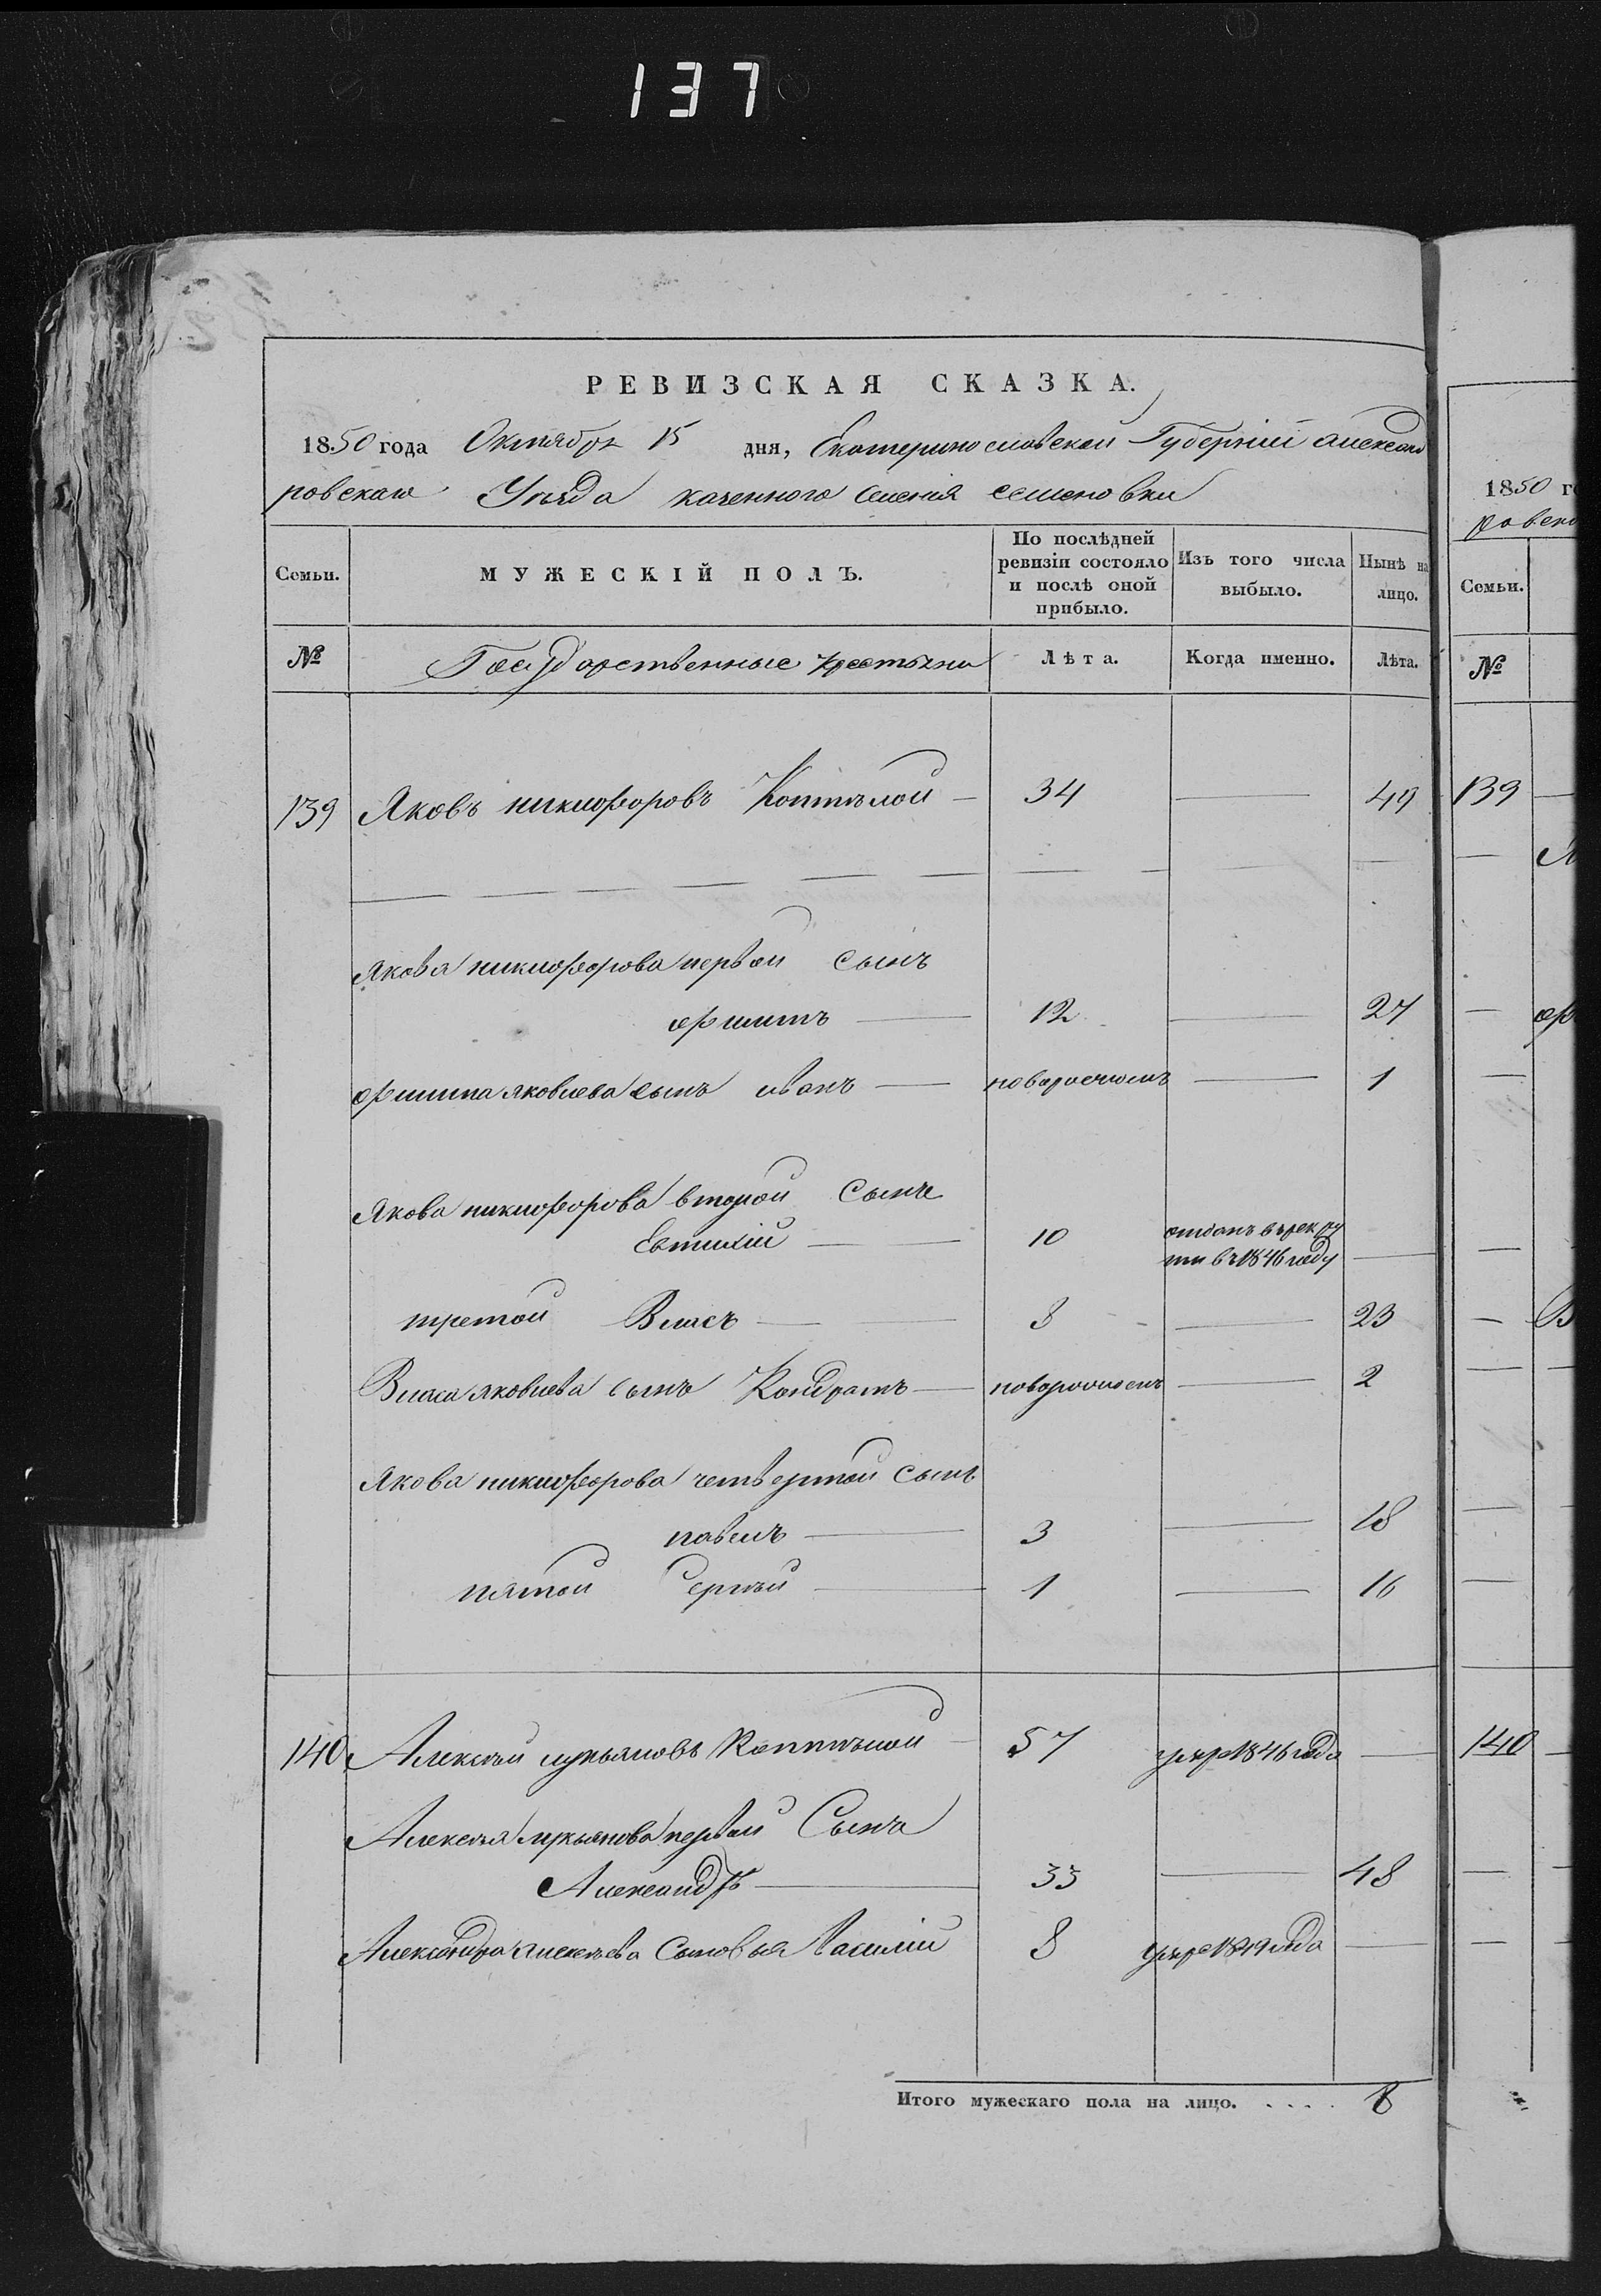 137
РЕВИЗСКАЯ СКАЗКА.
1850 года Октября 15 дня, Екатеринославской Губерніи Александ
ровскаго Уѣзда казенного селенія семеновки
Семьи. МУЖЕСКІЙ ПОЛЪ. По послѣдней ревизіи состояло и послѣ оной прибыло. Изъ того числа выбыло. Нынѣ на лицо.
№ Государственные крестьяне Лѣта. Когда именно. Лѣта.
139 Яковъ никифоровъ Коптѣлой — 34 — 49
Якова никифорова первой сынъ
филипъ — 12 — 27
филипа яковлева сынъ иванъ — новорожденъ — 1
Якова никифорова второй сынъ
Евтихій — 10 отданъ в рекру
ты въ 1846 году —
третой Власъ — 8 — 23
Власа яковлева сынъ Кондратъ — новорожденъ — 2
Якова никифорова четвертой сынъ
павелъ — 3 — 18
пятой Сергѣй — 1 — 16
140 Алексѣй лукьяновъ Коптѣлой 57 умре 1846 года —
Алексѣя лукьянова первой Сынъ
Александръ — 33 — 48
Александра алексѣева Сыновья Василій 8 умре 1849 года —
Итого мужескаго пола на лицо. . . . . 8
1850 го
ровска
Семьи.
№
139
140